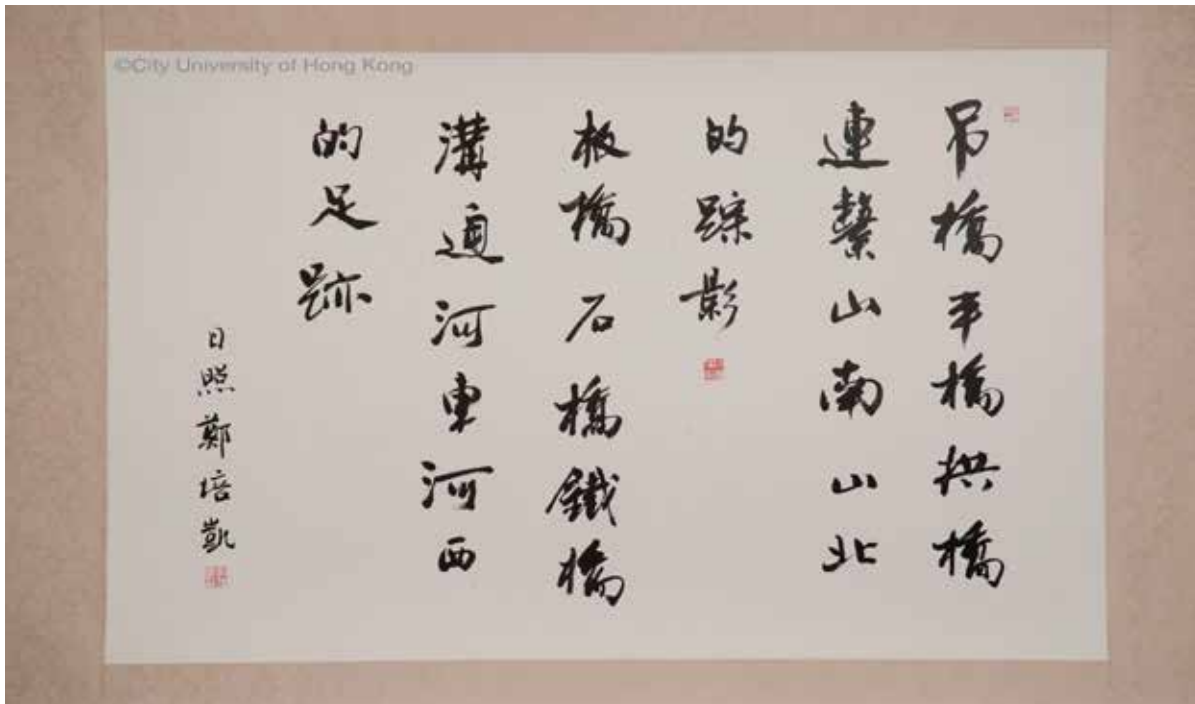 ©City University of Hong Kong
吊橋平橋拱橋
連繫山南山北
的踪影
板橋石橋鐵橋
溝通河東河西
的足跡
日照鄭培凱